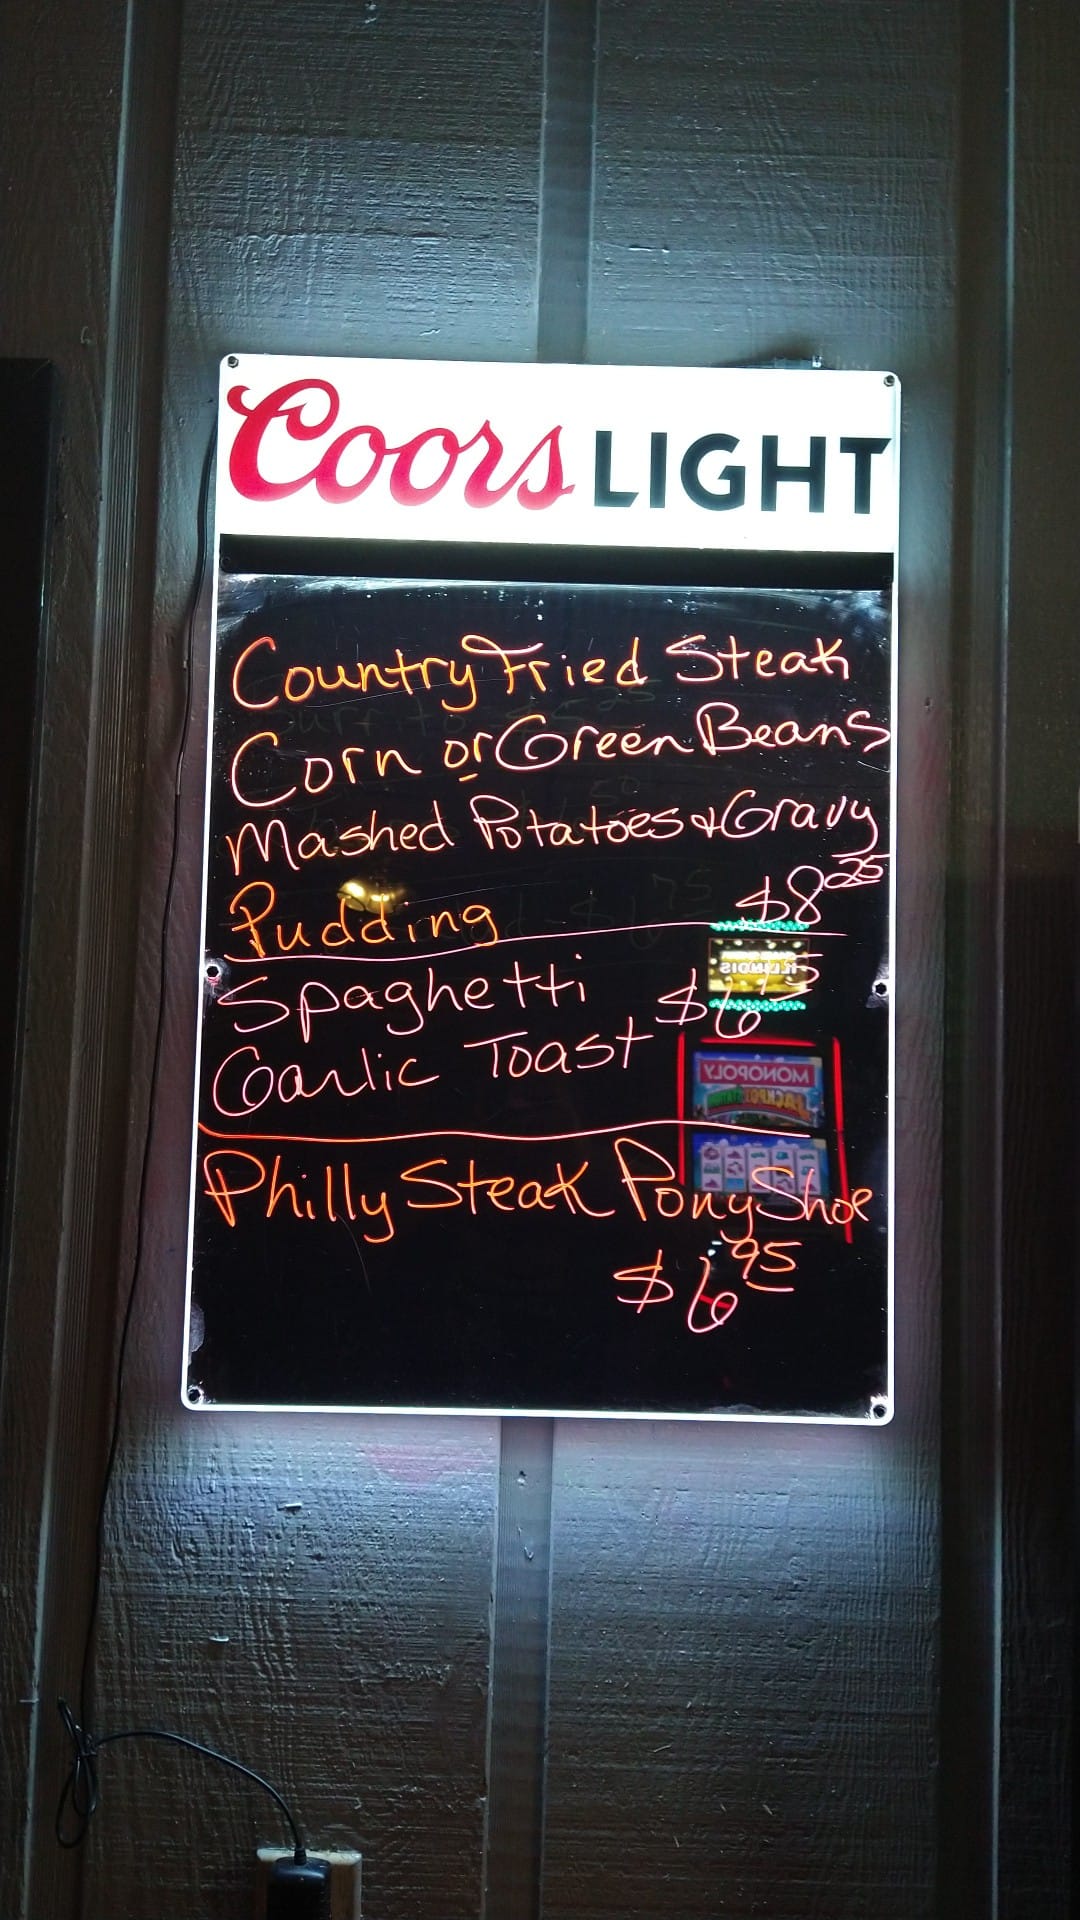 Coors LIGHT
Country Fried Steak
Corn or Green Beans
Mashed Potatoes & Gravy
Pudding $8 25
Spaghetti
Garlic Toast $6
Philly Steak Pony Shoe
$6 95
ILLINOIS
MONOPOLY
JACKPOT STATION